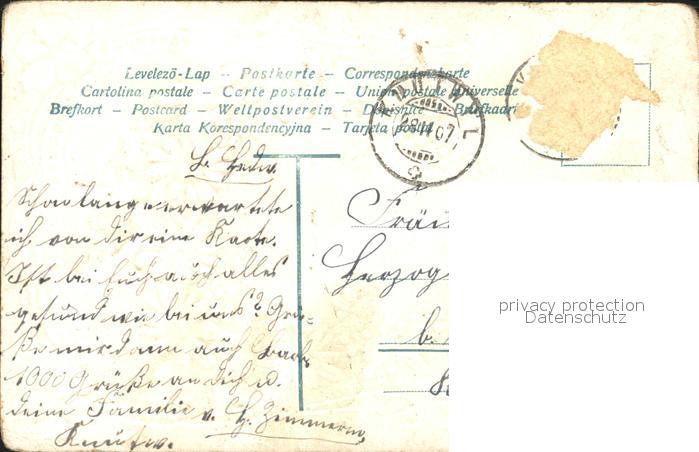 Levelező-Lap – Postkarte – Correspondenzkarte
Cartolina postale – Carte postale – Union postale universelle
Brefkort – Postcard – Weltpostverein – Dopisnice – Briefkaart
Karta Korespondencyjna – Tarjeta postal
KNUTWIL
28 II 07
L. Hedw.
Schon lange erwartete
ich von dir eine Karte.
Ist bei Euch auch alles
gesund wie bei uns? Grü-
ße mir dann auch
1000 Grüße an Dich u.
deine Familie v. Zimmerm.
Knutw.
Fräu
Herzog
b.
privacy protection
Datenschutz